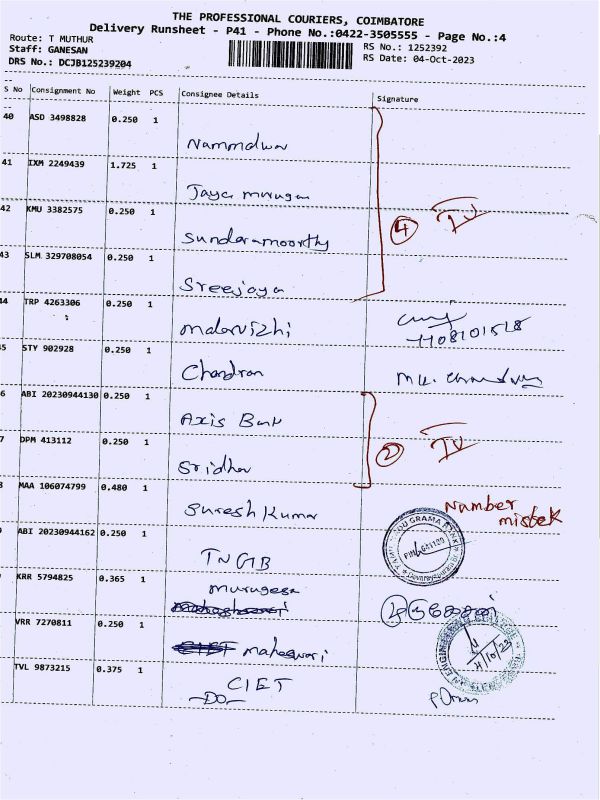 THE PROFESSIONAL COURIERS, COIMBATORE
Delivery Runsheet - P41 - Phone No.:0422-3505555 - Page No.:4
Route: T MUTHUR
Staff: GANESAN
RS No.: 1252392
DRS No.: DCJB125239204
RS Date: 04-Oct-2023
S No Consignment No Weight PCS Consignee Details Signature
40 ASD 3498828 0.250 1
Nammalwar
41 IXM 2249439 1.725 1
Jaya murugan
42 KMU 3382575 0.250 1
Sundaramoorthy
④ IV
43 SLM 329708054 0.250 1
Sreejaya
44 TRP 4263306 0.250 1
malarvizhi
5 STY 902928 0.250 1
Chandran
6 ABI 20230944130 0.250 1
Axis Bank
② IV
7 DPM 413112 0.250 1
Sridhar
8 MAA 106074799 0.480 1
Suresh Kumar
Number
mistek
ABI 20230944162 0.250 1
TNGB
KRR 5794825 0.365 1
murugesa
VRR 7270811 0.250 1
maheswari
4/10/23
TVL 9873215 0.375 1
CIET
-DO-